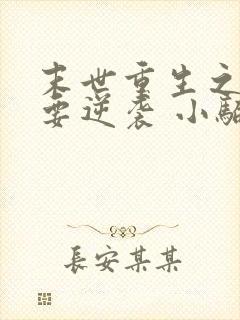 末世重生之
要逆袭 小
長安某某